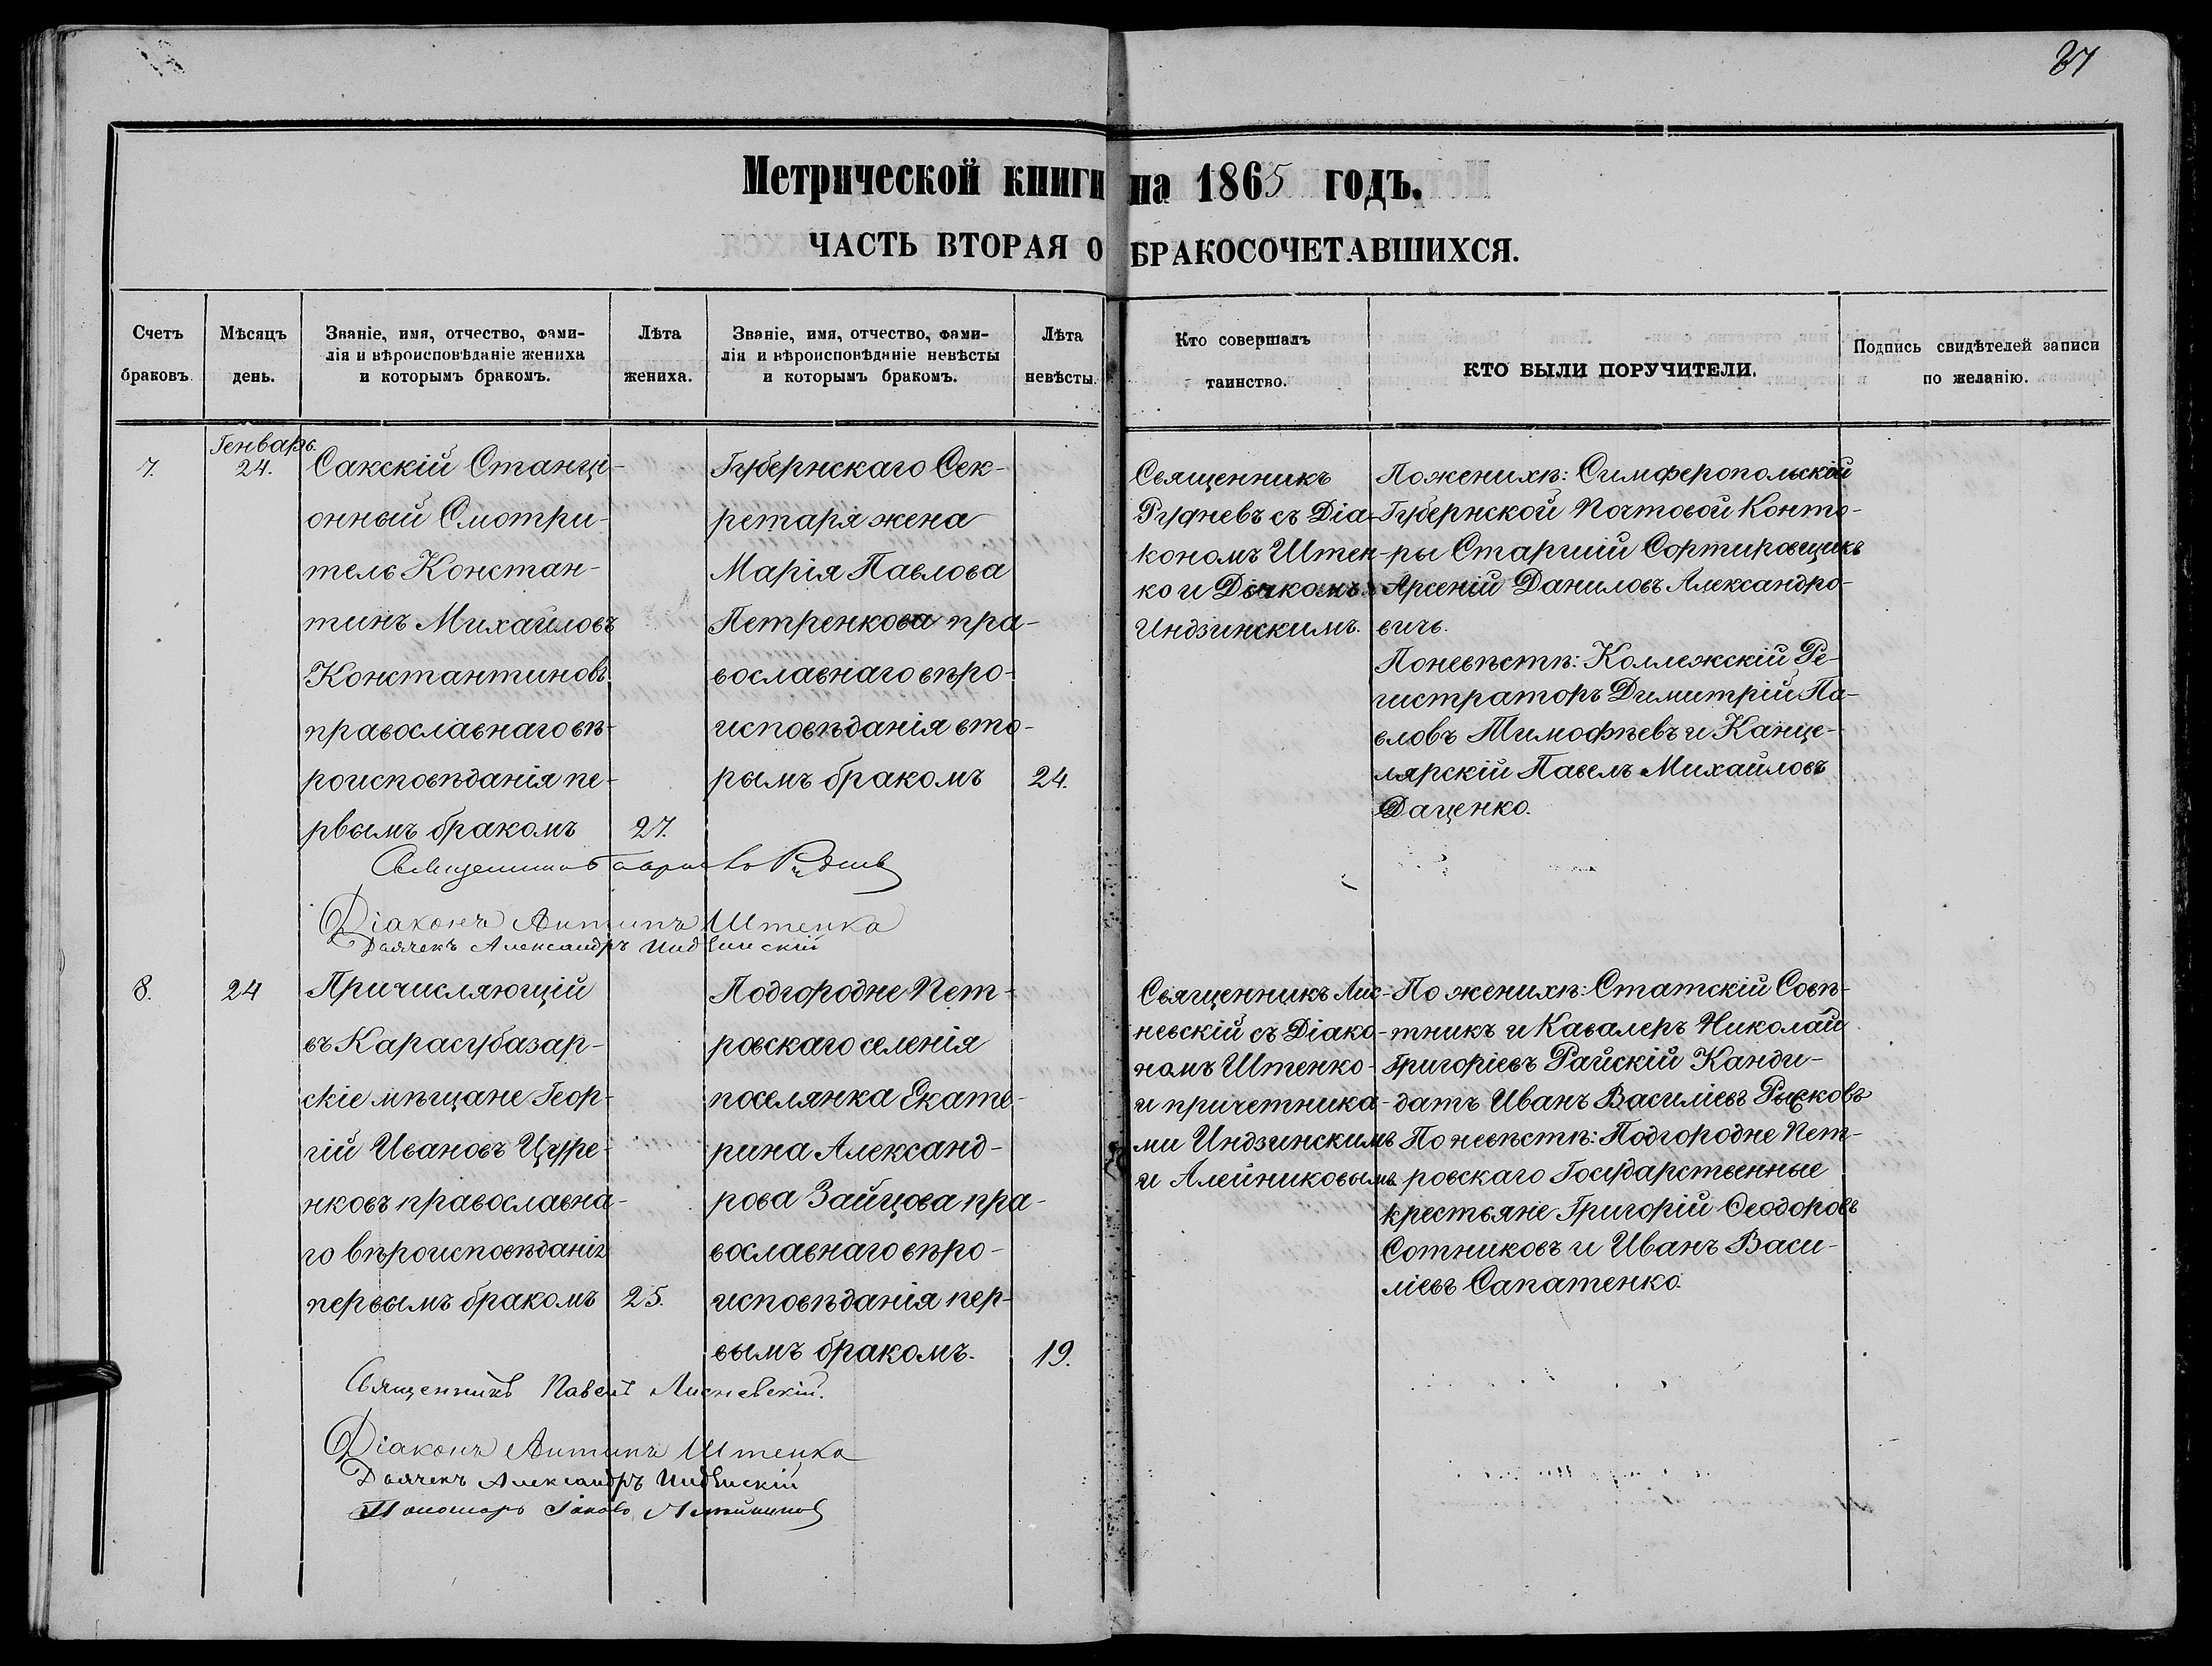 37
Метрической книги на 1865 годъ.
ЧАСТЬ ВТОРАЯ О БРАКОСОЧЕТАВШИХСЯ.
Счетъ браковъ.
Мѣсяцъ день.
Званіе, имя, отчество, фами-
лія и вѣроисповѣданіе жениха
и которымъ бракомъ.
Лѣта жениха.
Званіе, имя, отчество, фами-
лія и вѣроисповѣданіе невѣсты
и которымъ бракомъ.
Лѣта невѣсты.
Кто совершалъ
таинство.
КТО БЫЛИ ПОРУЧИТЕЛИ.
Подпись свидѣтелей записи
по желанію.
7.
Генварь.
24.
Сакскій Станці-
онный Смотри-
тель Констан-
тинъ Михайловъ
Константиновъ
православнаго вѣ-
роисповѣданія пе-
рвымъ бракомъ
27.
Губернскаго Сек-
ретаря жена
Марія Павлова
Петренкова пра-
вославнаго вѣро-
исповѣданія вто-
рымъ бракомъ
24.
Священникъ
Рудневъ съ Діа-
кономъ Штен-
ко и Дьячкомъ
Индзинскимъ.
По женихѣ: Симферопольскій
Губернской Почтовой Конто-
ры Старшій Сортировщикъ
Арсеній Даниловъ Александро-
вичъ.
По невѣстѣ: Коллежскій Ре-
гистраторъ Димитрій Па-
вловъ Тимофѣевъ и Канце-
лярскій Павелъ Михайловъ
Даценко.
Священникъ Рудневъ
Діаконъ Антипъ Штенко
Дьячекъ Александръ Индзинскій
8.
24
Причисляющій
въ Карасубазар-
скіе мѣщане Геор-
гій Ивановъ Цуре-
нковъ православна-
го вѣроисповѣданія
первымъ бракомъ
25.
Подгородне Пет-
ровскаго селенія
поселянка Екате-
рина Александ-
рова Зайцова пра-
вославнаго вѣро-
исповѣданія пер-
вымъ бракомъ.
19.
Священникъ Лис-
невскій съ Діако-
номъ Штенко
и причетника-
ми Индзинскимъ
и Алейниковымъ.
По женихѣ: Статскій Совѣ-
тникъ и Кавалеръ Николай
Григорьевъ Райскій Канди-
датъ Иванъ Василіевъ Рысковъ
По невѣстѣ: Подгородне Пет-
ровскаго Государственные
крестьяне Григорій Ѳеодоровъ
Сотниковъ и Иванъ Васи-
ліевъ Сапатенко.
Священникъ Павелъ Лисневскій.
Діаконъ Антипъ Штенко
Дьячекъ Александръ Индзинскій
Пономарь Іаковъ Алейниковъ